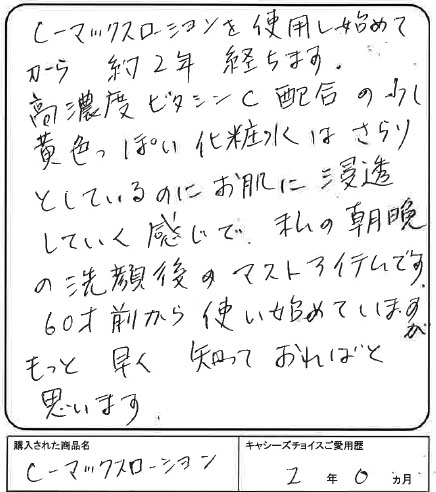 C-マックスローションを使用し始めて
から 約2年 経ちます.
高濃度ビタシンC配合の少し
黄色っぽい化粧水はさらり
としているのにお肌に浸透
していく感じで.私の朝晩
の洗顔後のマストアイテムです.
60才前から使い始めていますが
もっと 早く 知って おればと
思います.
購入された商品名
C-マックスローション
キャシーズチョイスご愛用歴
2年0ヵ月